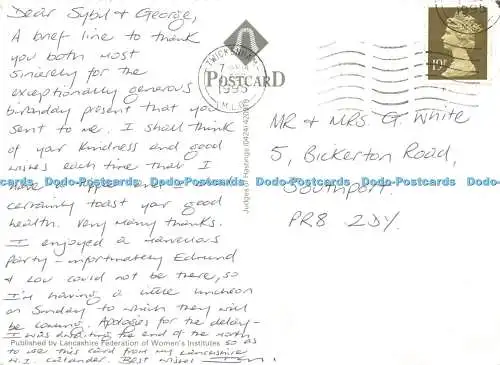 Dear Sybil & George,
A brief line to thank
you both most
sincerely for the
exceptionally generous
birthday present that you
sent to me. I shall think
of your kindness and good
wishes each time that I
certainly toast your good
health. Very many thanks.
I enjoyed a marvellous
party - unfortunately Edmund
& Lou could not be there, so
I'm having a little luncheon
on Sunday to which they will
be coming. Apologies for the delay -
I was awaiting the end of the month
Published by Lancashire Federation of Women's Institutes
so as
to use this card from my Lancashire
W.I. Calendar. Best wishes
TWICKENHAM
1995
POSTCARD
Judges of Hastings (0424) 420919
1995
19P
MR & MRS G. White
5, Bickerton Road,
Southport.
PR8 2DY.
Dodo-Postcards Dodo-Postcards Dodo-Postcards Dodo-Postcards Dodo-Postcards